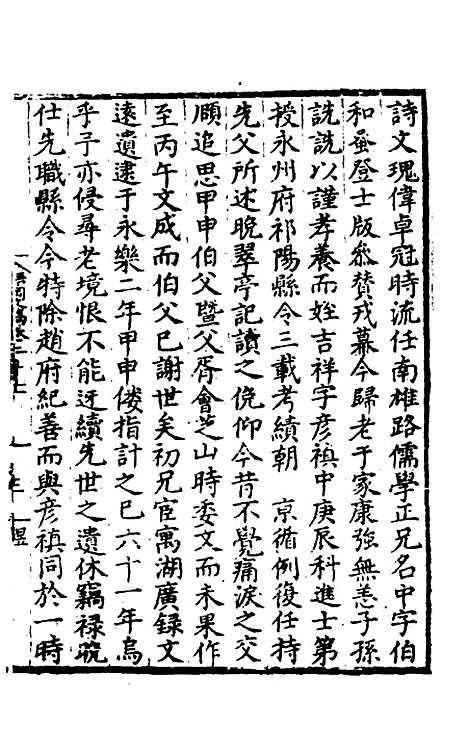 詩文瑰偉卓冠時流任南雄路儒學正兄名中字伯
和蚤登士版叅贊戎幕今歸老于家康強無恙子孫
詵詵以謹孝養而姪吉祥字彦禎中庚辰科進士第
授永州府祁陽縣令三載考績朝 京循例復任持
先父所述晚翠亭記讀之俛仰今昔不覺痛淚之交
頤追思甲申伯父暨父胥會芝山時委文而未果作
至丙午文成而伯父已謝世矣初兄宦寓湖廣録文
遠遺逮于永樂二年甲申僂指計之已六十一年烏
乎子亦侵尋老境恨不能迓續先世之遺休竊禄晥
仕先職縣令今特除趙府紀善而與彦禎同於一時